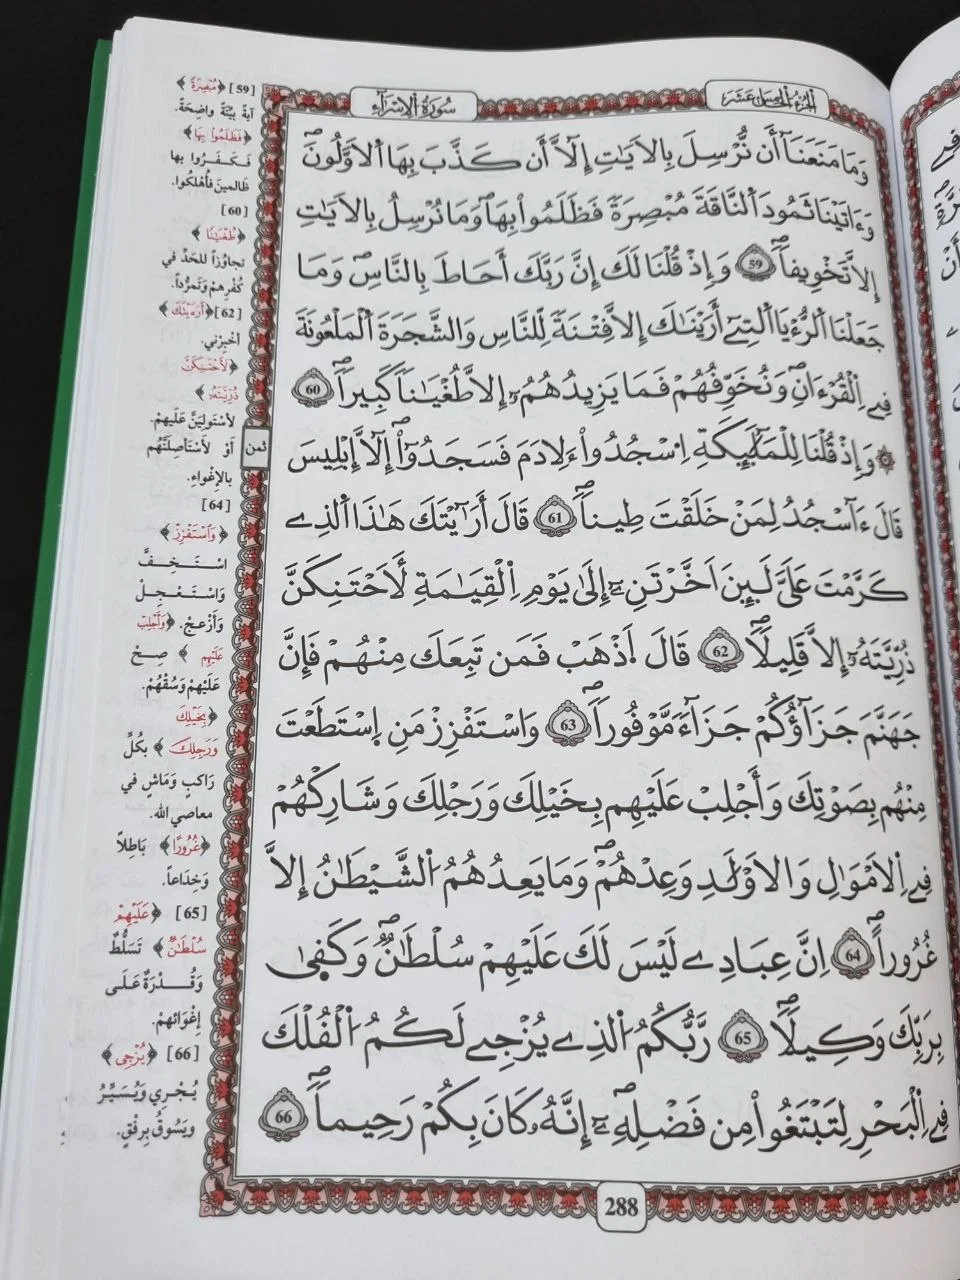 الجزء الخامس عشر
سورة الإسراء
وَمَا مَنَعَنَآ أَن نُّرْسِلَ بِالَايَٰتِ إِلَّآ أَن كَذَّبَ بِهَا اَلَاوَّلُونَۖ
وَءَاتَيْنَا ثَمُودَ اَلنَّاقَةَ مُبْصِرَةٗ فَظَلَمُواْ بِهَاۖ وَمَا نُرْسِلُ بِالَايَٰتِ
إِلَّا تَخْوِيفاٗۖ 59 وَإِذْ قُلْنَا لَكَ إِنَّ رَبَّكَ أَحَاطَ بِالنَّاسِۖ وَمَا
جَعَلْنَا اَلرُّءْيَا اَلتِےٓ أَرَيْنَٰكَ إِلَّا فِتْنَةٗ لِّلنَّاسِ وَالشَّجَرَةَ اَلْمَلْعُونَةَ
فِے اِلْقُرْءَانِۖ وَنُخَوِّفُهُمْ فَمَا يَزِيدُهُمُۥٓ إِلَّا طُغْيَٰناٗ كَبِيراٗۖ 60
۞ وَإِذْ قُلْنَا لِلْمَلَٰٓئِكَةِ اِ۟سْجُدُواْ ءِلَادَمَ فَسَجَدُوٓاْ إِلَّآ إِبْلِيسَۖ
قَالَ ءَآسْجُدُ لِمَنْ خَلَقْتَ طِيناٗۖ 61 قَالَ أَرَٰٓيْتَكَ هَٰذَا اَلذِے
كَرَّمْتَ عَلَيَّ لَئِنَ اَخَّرْتَنِۦٓ إِلَىٰ يَوْمِ اِلْقِيَٰمَةِ لَأَحْتَنِكَنَّ
ذُرِّيَّتَهُۥٓ إِلَّا قَلِيلاٗۖ 62 قَالَ اَ۪ذْهَبْ فَمَن تَبِعَكَ مِنْهُمْ فَإِنَّ
جَهَنَّمَ جَزَآؤُكُمْ جَزَآءٗ مَّوْفُوراٗۖ 63 وَاسْتَفْزِزْ مَنِ اِ۪سْتَطَعْتَ
مِنْهُم بِصَوْتِكَ وَأَجْلِبْ عَلَيْهِم بِخَيْلِكَ وَرَجْلِكَ وَشَارِكْهُمْ
فِے اِلَامْوَٰلِ وَالَاوْلَٰدِ وَعِدْهُمْۖ وَمَا يَعِدُهُمُ اُلشَّيْطَٰنُ إِلَّا
غُرُوراٗۖ 64 اِنَّ عِبَادِے لَيْسَ لَكَ عَلَيْهِمْ سُلْطَٰنٞۖ وَكَفَىٰ
بِرَبِّكَ وَكِيلاٗۖ 65 رَّبُّكُمُ اُلذِے يُزْجِے لَكُمُ اُلْفُلْكَ
فِے اِلْبَحْرِ لِتَبْتَغُواْ مِن فَضْلِهِۦٓۖ إِنَّهُۥ كَانَ بِكُمْ رَحِيماٗۖ 66
288
ثمن
[59] ﴿مُبْصِرَةً﴾
آيَةً بَيِّنَةً وَاضِحَةً.
﴿فَظَلَمُوا بِهَا﴾
فَكَفَرُوا بها
ظَالِمينَ فَأُهْلِكُوا.
[60]
﴿طُغْيَٰنًا﴾
تجاوُزاً للحَدِّ في
كُفْرِهِمْ وَتَمَرُّداً.
[62] ﴿أَرَءَيْتَكَ﴾
أخْبِرْني.
﴿لَأَحْتَنِكَنَّ
ذُرِّيَّتَهُۥ﴾
لأسْتَولِيَنَّ عَلَيهِمْ.
أَوْ لَأَسْتَأصِلَنَّهُم
بالإغْواءِ.
[64]
﴿وَاَسْتَفْزِزْ﴾
اسْتَخِفَّ
وَاسْتَعْجِلْ
وَأَزْعِجْ. ﴿وَأَجْلِبْ
عَلَيْهِم﴾ صِحْ
عَلَيْهِمْ وَسُقْهُمْ.
﴿بِخَيْلِكَ
وَرَجِلِكَ﴾ بكُلِّ
رَاكِبٍ وَمَاشٍ في
معاصي الله.
﴿غُرُورًا﴾ بَاطِلاً
وَخِدَاعاً.
[65] ﴿عَلَيْهِمْ
سُلْطَٰنٌ﴾ تَسَلُّطٌ
وَقُدْرَةٌ عَلَى
إغْوَائِهمْ.
[66] ﴿يُزْجِى﴾
يُجْرِي وَيُسَيِّرُ
وَيَسُوقُ بِرِفْقٍ.